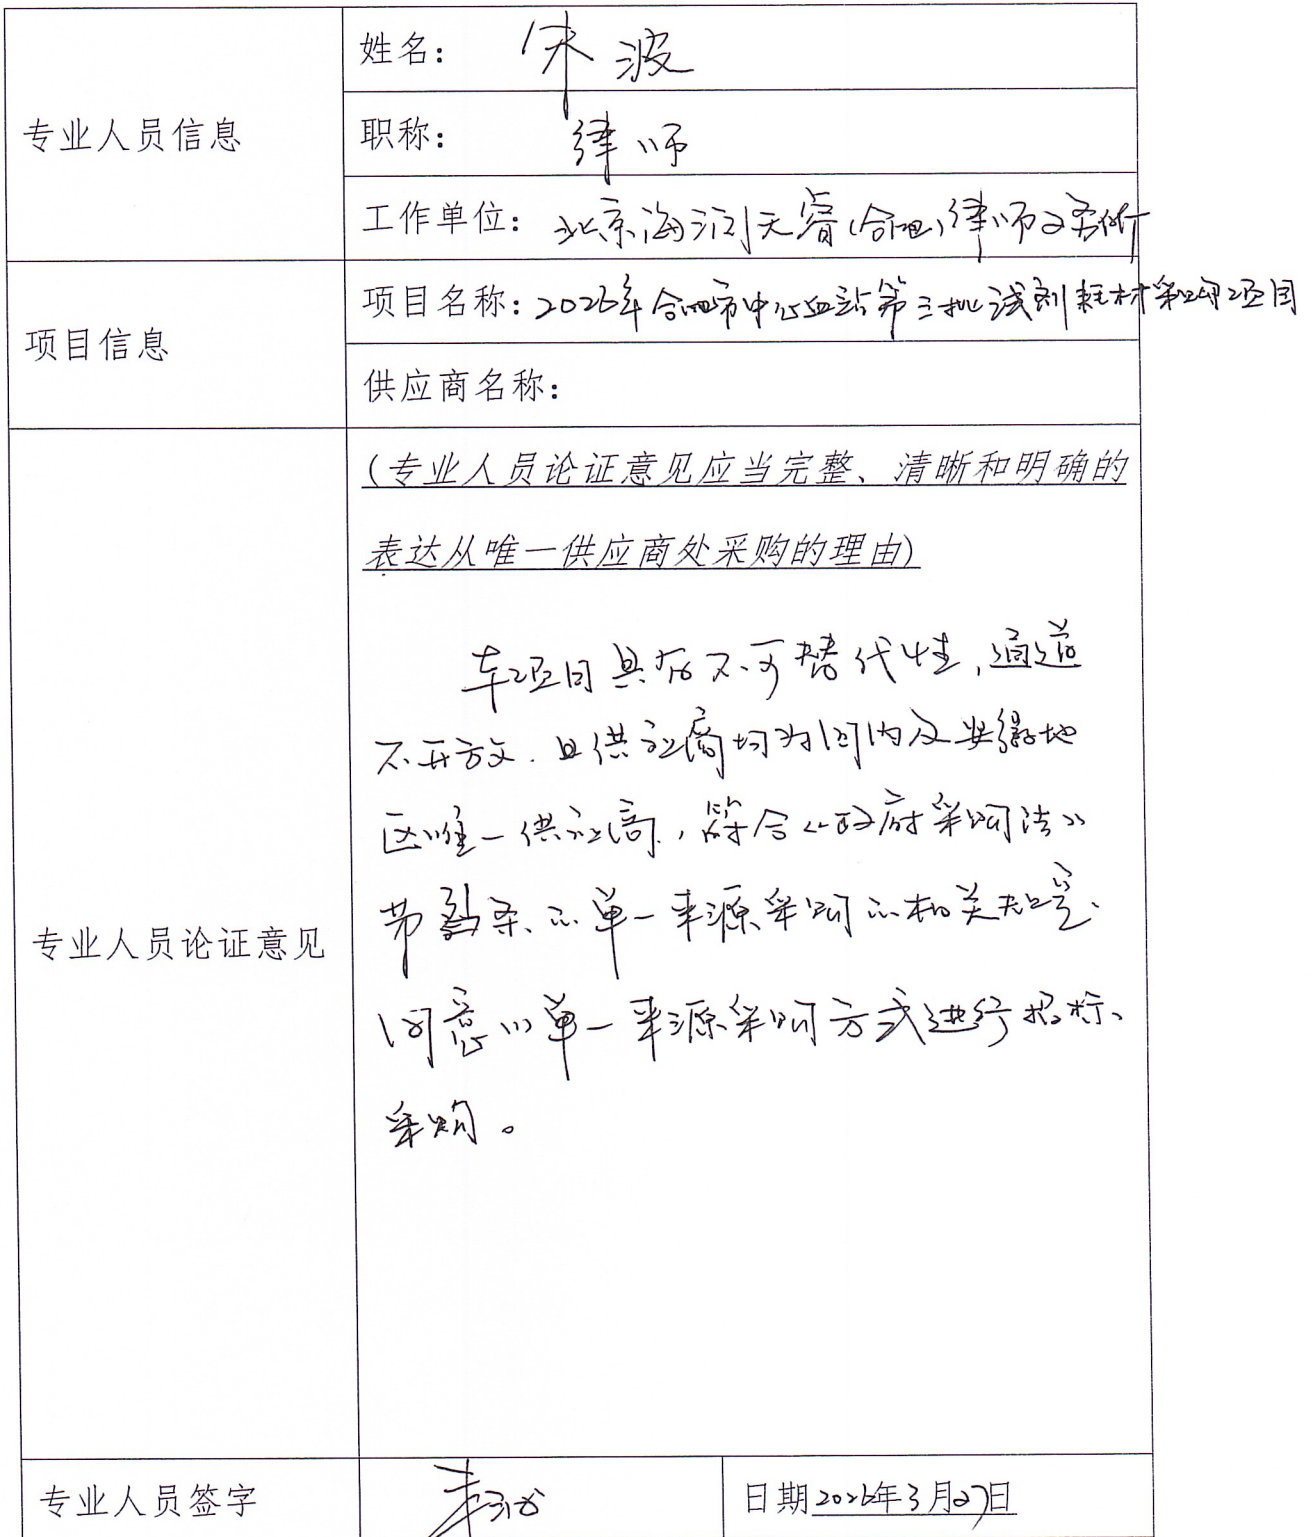 专业人员信息
姓名: 朱波
职称: 律师
工作单位: 北京海润天睿(合肥)律师事务所
项目信息
项目名称: 2026年合肥市中心血站第三批试剂耗材采购项目
供应商名称:
专业人员论证意见
(专业人员论证意见应当完整、清晰和明确的
表达从唯一供应商处采购的理由)
本项目具有不可替代性,通道
不开放.且供应商均为国内及安徽地
区唯一供应商,符合《政府采购法》
第 条 单一来源采购的相关规定.
同意以单一来源采购方式进行招标、
采购。
专业人员签字
日期 2026年3月27日